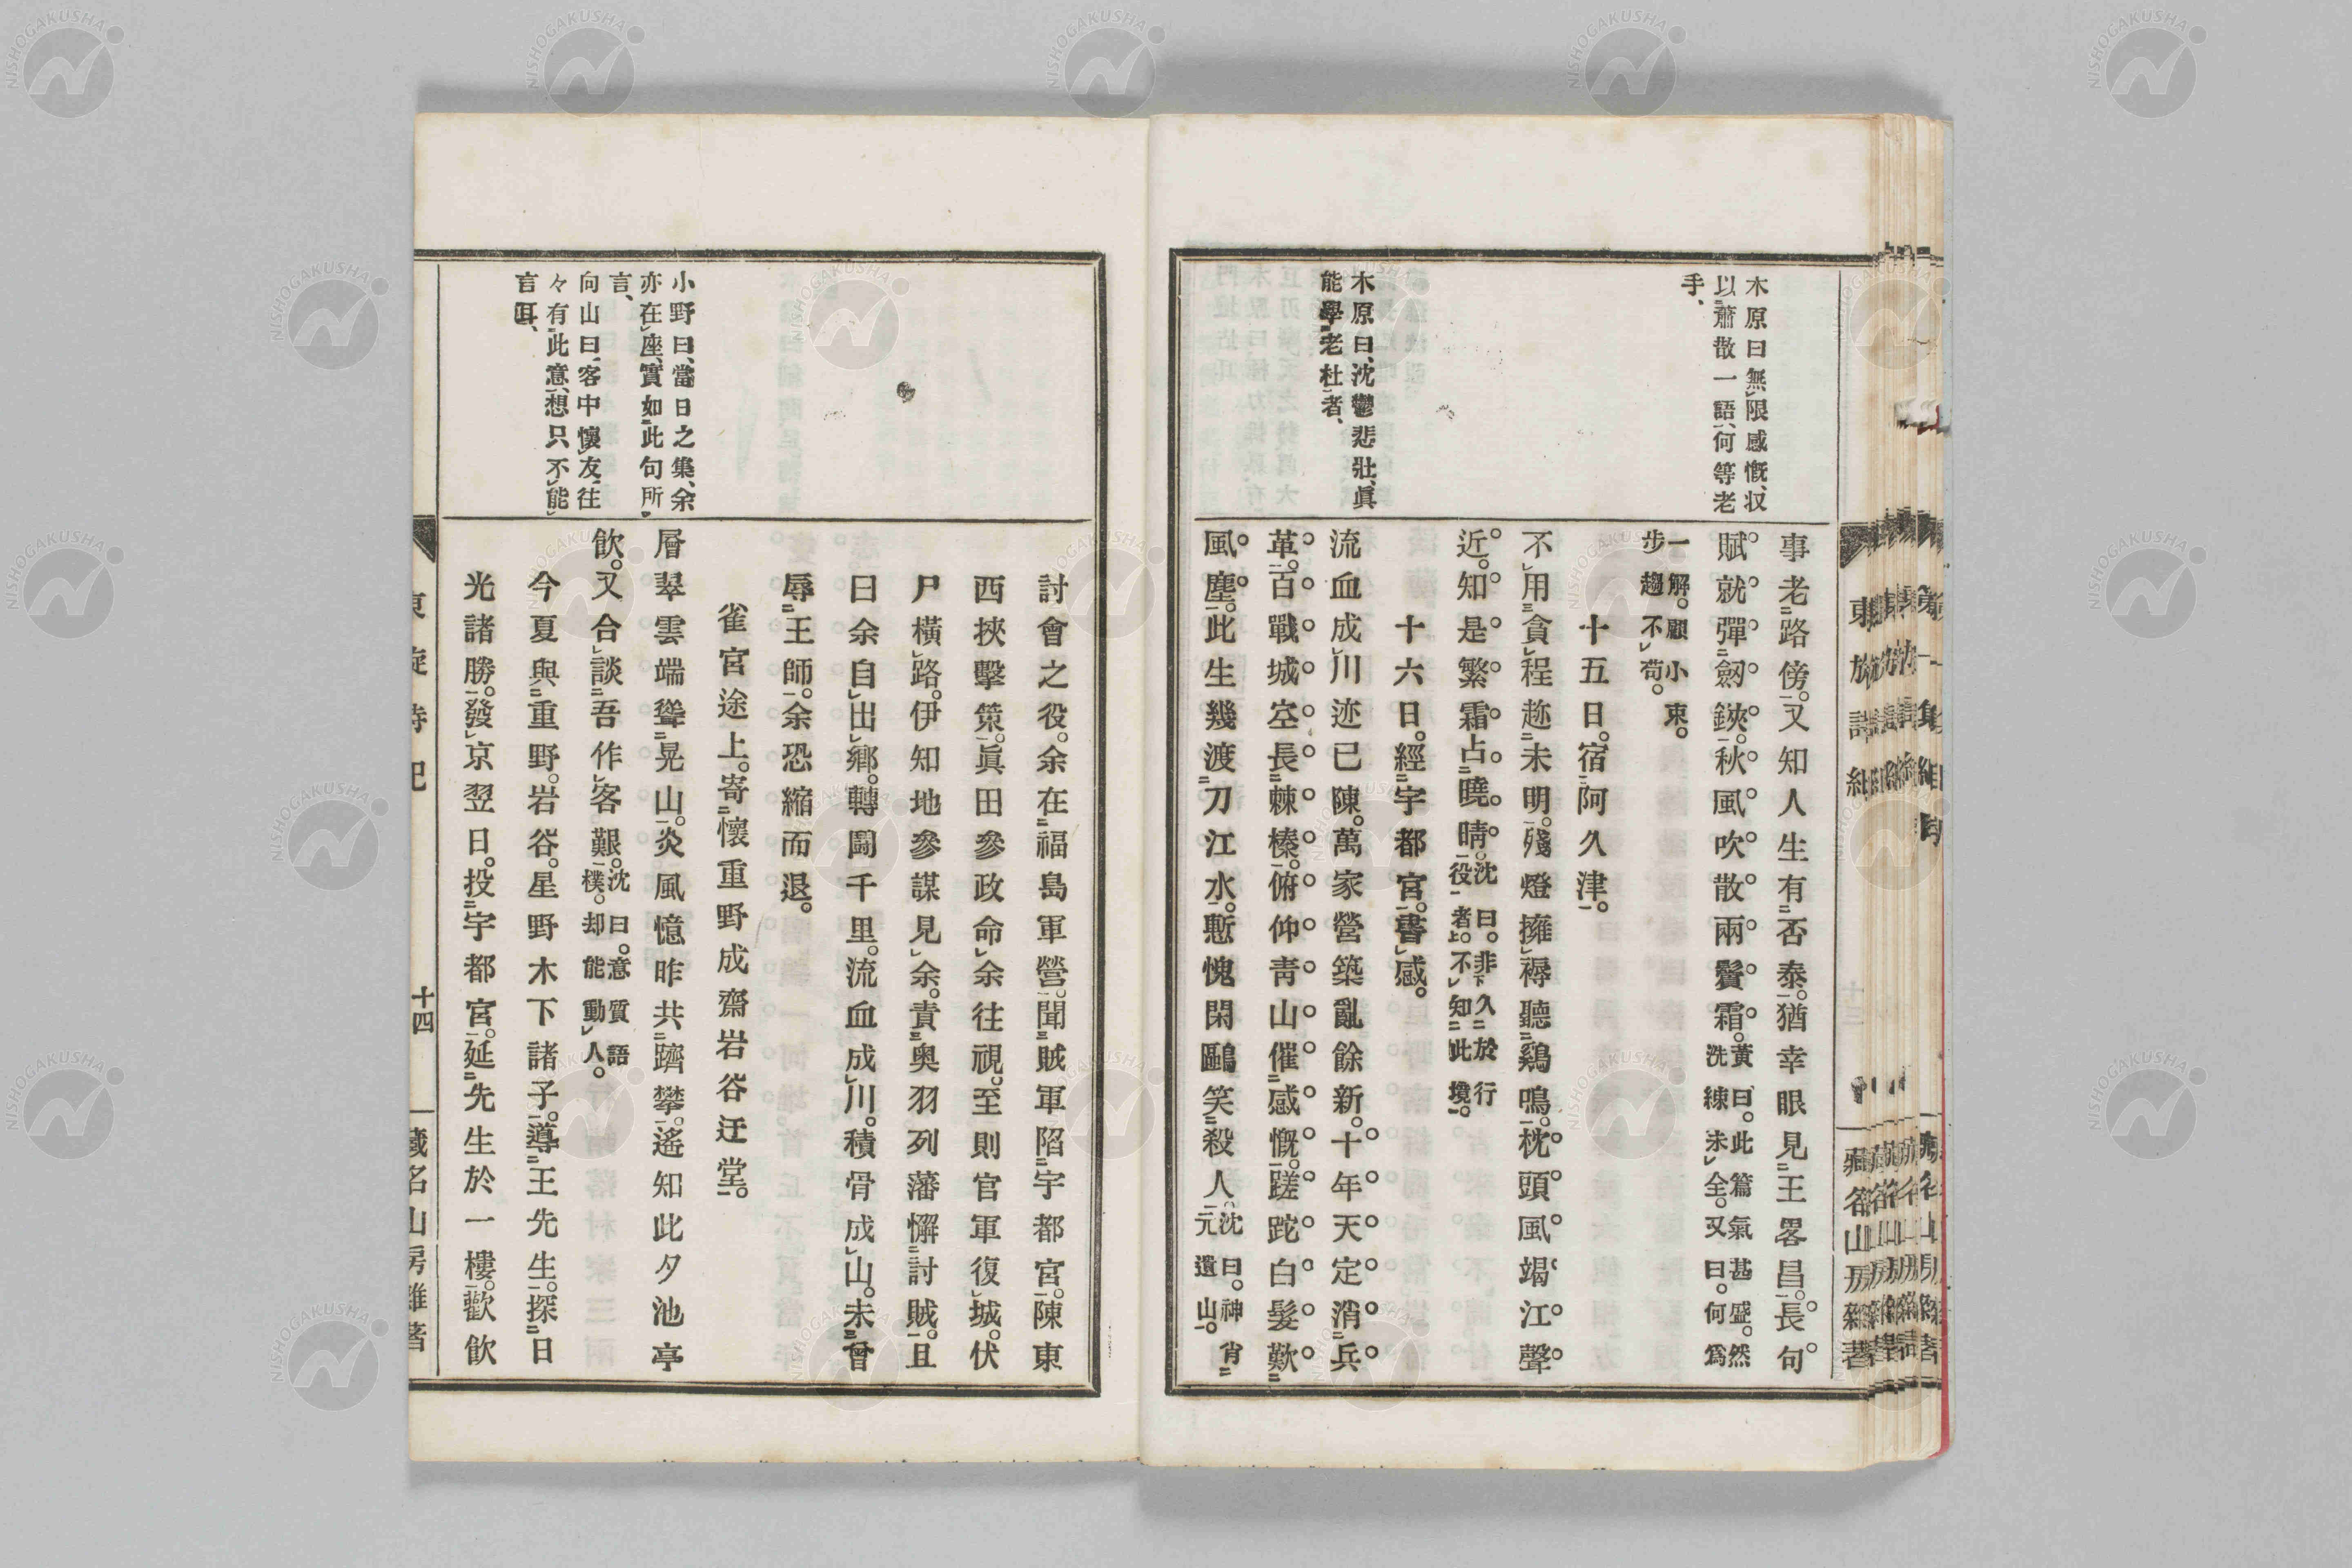 木原曰、無限感慨、収
以蕭散一語、何等老
手、
木原曰、沈鬱悲壯、眞
能學老杜者、
事老路傍。又知人生有否泰。猶幸眼見王畧昌。長句
賦就彈劒鋏。秋風吹散兩鬢霜。黃曰。此篇氣甚盛。然
洗練未全。又曰。何爲
一解。顧小束。
步趨不苟。
十五日。宿阿久津。
不用貪程趂未明。殘燈擁褥聽鷄鳴。枕頭風竭江聲
近。知是繁霜占曉晴。沈曰。非久於行
役者。不知此境。
十六日。經宇都宮。書感。
流血成川迹已陳。萬家營築亂餘新。十年天定消兵
革。百戰城空長棘榛。俯仰靑山催感慨。蹉跎白髮歎
風塵。此生幾渡刀江水。慙愧閑鷗笑殺人。沈曰。神肖
元遺山。
小野曰、當日之集、余
亦在座、實如此句所
言、
向山曰、客中懷友、往
々有此意、想只不能
言耳、
討會之役。余在福島軍營。聞賊軍陷宇都宮。陳東
西挾擊策。眞田參政命余往視。至則官軍復城。伏
尸橫路。伊知地參謀見余。責奥羽列藩懈討賊。且
曰余自出鄕。轉鬪千里。流血成川。積骨成山。未曾
辱王師。余恐縮而退。
雀宮途上。寄懷重野成齋岩谷迂堂。
層翠雲端聳晃山。炎風憶昨共躋攀。遙知此夕池亭
飮。又合談吾作客艱。沈曰。意質語
樸。却能動人。
今夏與重野。岩谷。星野木下諸子。導王先生。探日
光諸勝。發京翌日。投宇都宮。延先生於一樓。歡飮
東旋詩紀
十四
藏名山房雜著